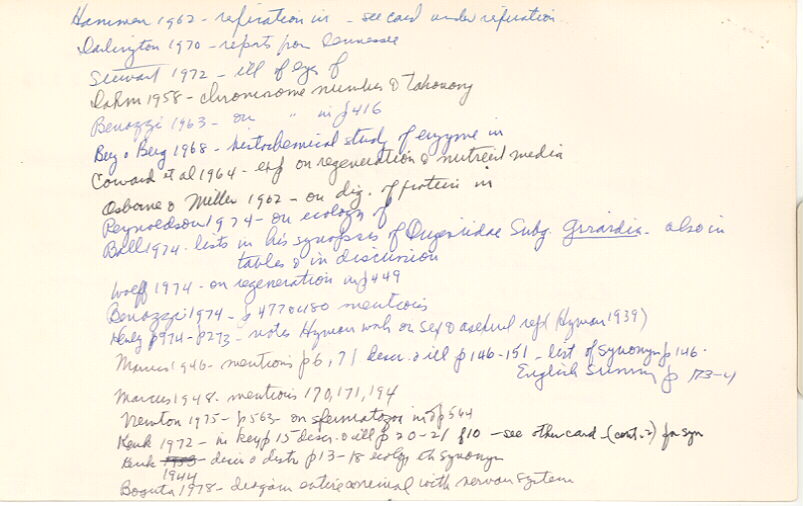 Hammen 1962 - respiration in - see card under respiration
Darlington 1970 - reports from Tennessee
Stewart 1972 - ill of eyes of
Dahm 1958 - chromosome number & taxonomy
Benazzi 1963 - on " in p 416
Berg & Berg 1968 - histochemical study of enzyme in
Coward et al 1964 - exp on regeneration & nutrient media
Osborne & Miller 1962 - on dig. of protein in
Reynoldson 1974 - on ecology of
Ball 1974 - lists in his synopsis of Dugesiidae Subg. Girardia - also in
tables & in discussion
Wolff 1974 - on regeneration in p 449
Benazzi 1974 - p 477 & 480 mentions
1974 - p 273 - notes Hyman work on sex & asexual repr (Hyman 1939)
Marcus 1946 - mentions p 6, 71 descr. & ill p 146-151 - list of synonym p 146.
English Summ p 173-4
Marcus 1948. mentions 170, 171, 194
Newton 1975 - p 563 - on spermatozoa in p 564
Kenk 1972 - in key p 15 descr. & ill p 20-21 f 10 - see other card - (cont. 2) for syn
Kenk 1944 - descr & distr p 13-18 ecology etc synonym
1978 - diagram entire animal with nervous system